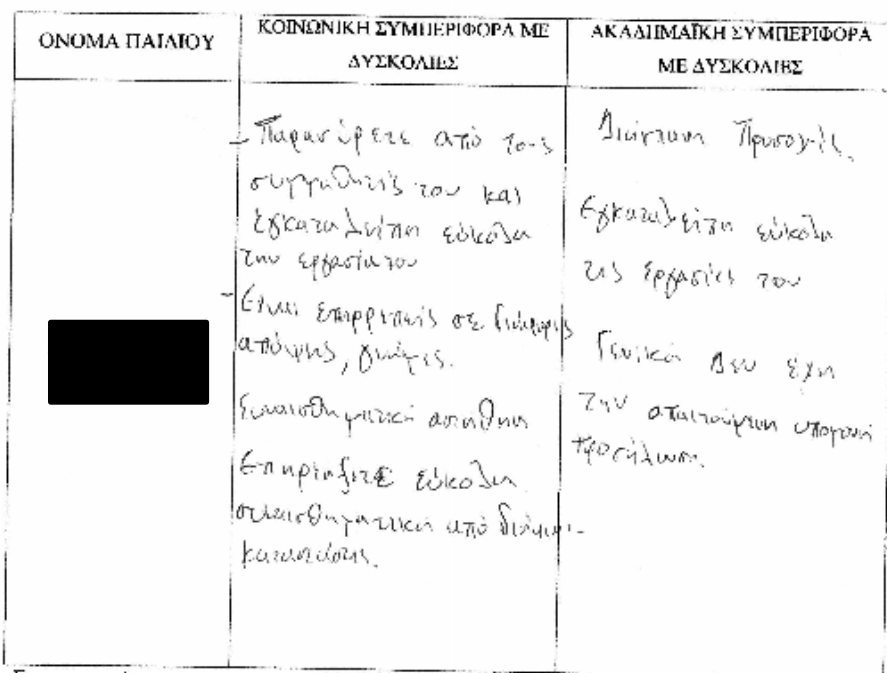 ΟΝΟΜΑ ΠΑΙΔΙΟΥ
ΚΟΙΝΩΝΙΚΗ ΣΥΜΠΕΡΙΦΟΡΑ ΜΕ
ΔΥΣΚΟΛΙΕΣ
ΑΚΑΔΗΜΑΪΚΗ ΣΥΜΠΕΡΙΦΟΡΑ
ΜΕ ΔΥΣΚΟΛΙΕΣ
- Παρασύρετε από τους
συμμαθητές του και
εγκαταλείπη εύκολα
την εργασία του
- Είναι επιρρεπείς σε διάφορες
απόψεις, γνώμες.
Συναισθηματικά
Επηρεάζετε εύκολα
συναισθηματικά από διάφορες
καταστάσεις.
Διάσπαση Προσοχής.
Εγκαταλείπη εύκολα
τις εργασίες του
Γενικά Δεν έχη
την απαιτούμενη υπομονή
προσήλωση.